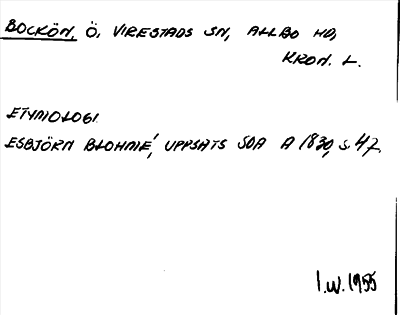 BOCKÖN, Ö, VIRESTADS SN, ALLBO HD,
KRON. L.
ETYMOLOGI
ESBJÖRN BLOHMÉ, UPPSATS SOA A 1830, S. 47.
I.W. 1955